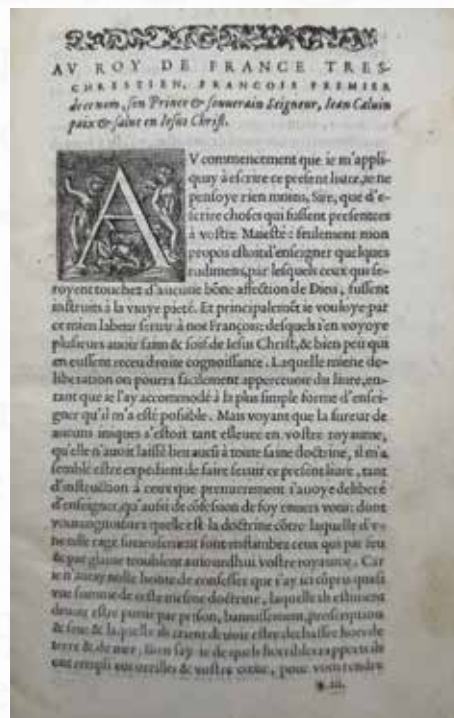 AV ROY DE FRANCE TRES-
CHRESTIEN, FRANCOIS PREMIER
de ce nom, son Prince & souuerain Seigneur, Iean Caluin
paix & salut en Iesus Christ.
AV commencement que ie m'appli-
quay à escrire ce present liure, ie ne
pensoye rien moins, Sire, que d'e-
scrire choses qui fussent presentees
à vostre Maiesté: seulement mon
propos estoit d'enseigner quelques
rudimens, par lesquels ceux qui se-
royent touchez d'aucune bōne affection de Dieu, fussent
instruits à la vraye pieté. Et principalemēt ie vouloye par
ce mien labeur seruir à noz François: desquels i'en voyoye
plusieurs auoir faim & soif de Iesus Christ, & bien peu qui
en eussent receu droite cognoissance. Laquelle miene de-
liberation on pourra facilement apperceuoir du liure, en-
tant que ie l'ay accommodé à la plus simple forme d'ensei-
gner qu'il m'a esté possible. Mais voyant que la fureur de
aucuns iniques s'estoit tant esleuee en vostre royaume,
qu'elle n'auoit laissé lieu aucū à toute saine doctrine, il m'a
semblé estre expedient de faire seruir ce present liure, tant
d'instruction à ceux que premierement i'auoye deliberé
d'enseigner, qu'aussi de cōfession de foy enuers vous: dont
vous cognoissiez quelle est la doctrine cōtre laquelle d'v-
ne telle rage furieusement sont enflambez ceux qui par feu
& par glaiue troublent auiourdhuy vostre royaume. Car
ie n'auray nulle honte de confesser que i'ay ici cōpris quasi
vne somme de ceste mesme doctrine, laquelle ils estiment
deuoir estre punie par prison, bannissement, proscription
& feu: & laquelle ils crient deuoir estre dechassee hors de
terre & de mer. Bien say-ie de quels horribles rapports ils
ont rempli vos oreilles & vostre cœur, pour vous rendre
iii.